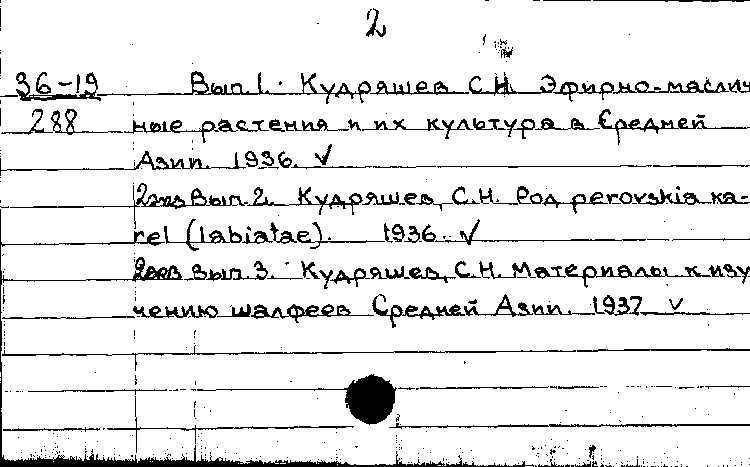 2
36-19 Вып. 1. Кудряшев С.Н. Эфирно-маслич
288 ные растения и их культура в Средней
Азии. 1936. ✓
2экз Вып. 2. Кудряшев, С.Н. Род perovskia ka-
rel (labiatae). 1936. ✓
Вып. 3. Кудряшев, С.Н. Материалы к изу
чению шалфеев Средней Азии. 1937 ✓